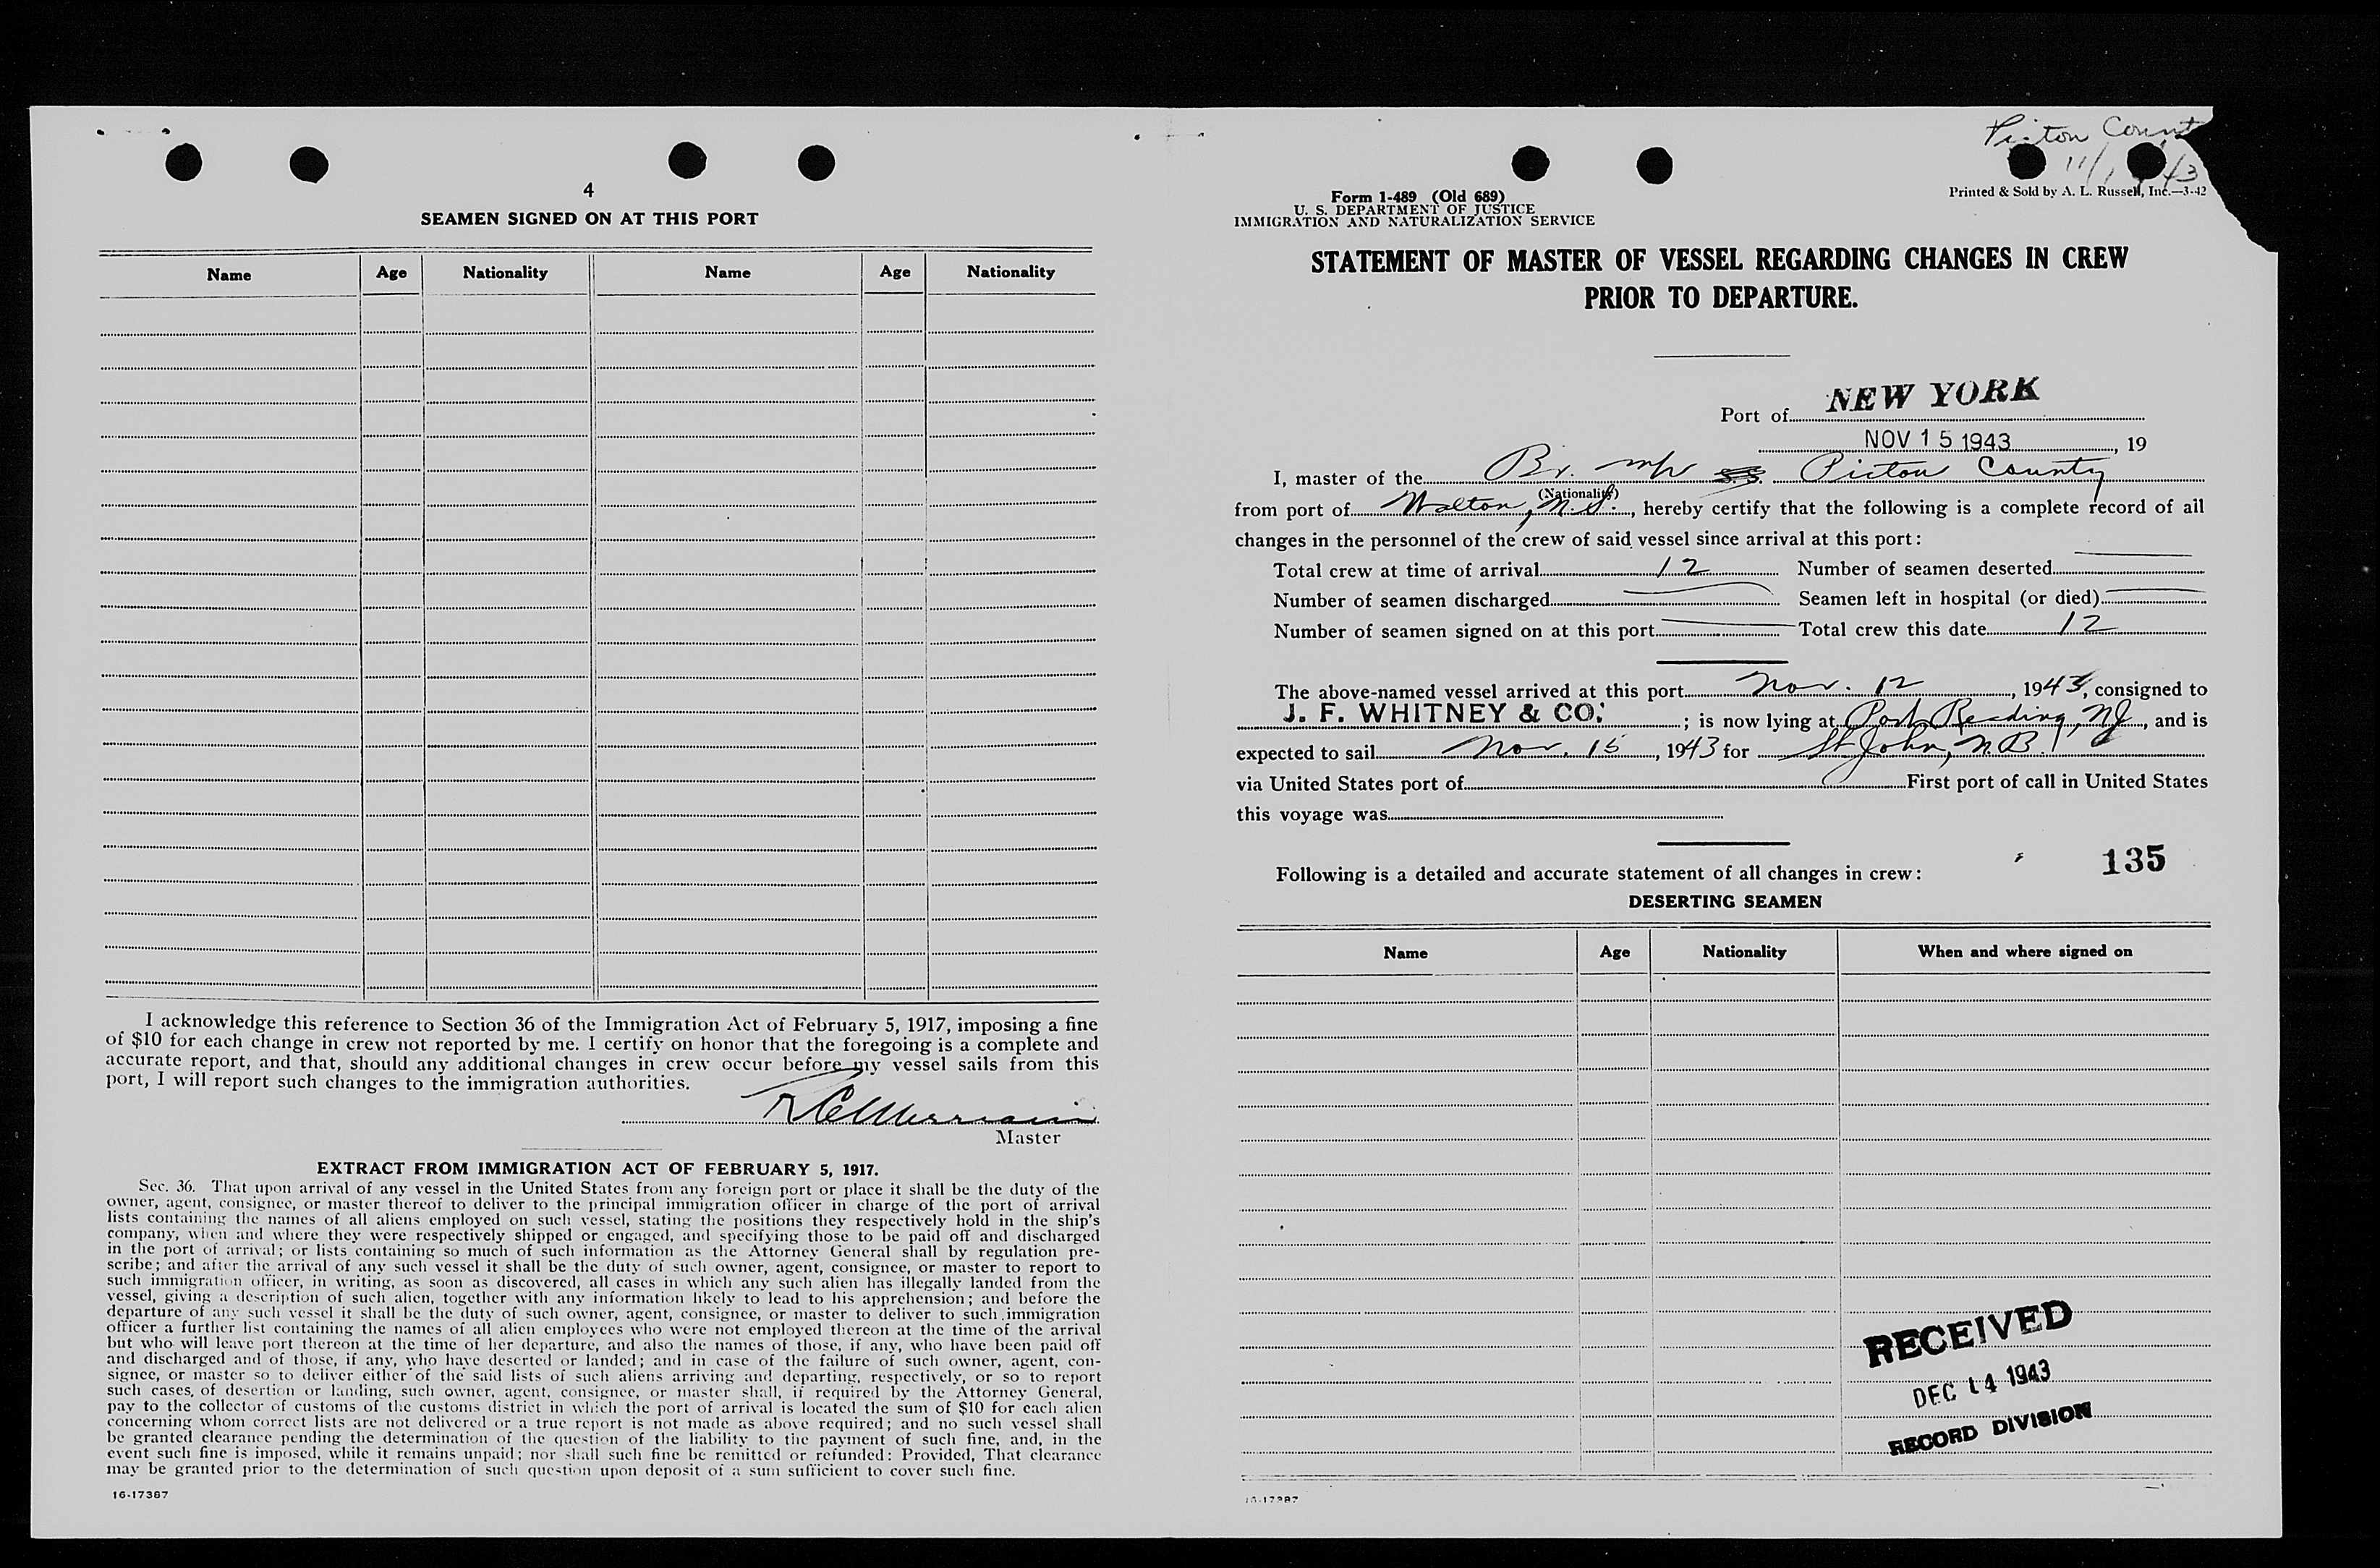 4
SEAMEN SIGNED ON AT THIS PORT
Name Age Nationality Name Age Nationality
I acknowledge this reference to Section 36 of the Immigration Act of February 5, 1917, imposing a fine
of $10 for each change in crew not reported by me. I certify on honor that the foregoing is a complete and
accurate report, and that, should any additional changes in crew occur before my vessel sails from this
port, I will report such changes to the immigration authorities.
Master
EXTRACT FROM IMMIGRATION ACT OF FEBRUARY 5, 1917.
Sec. 36. That upon arrival of any vessel in the United States from any foreign port or place it shall be the duty of the
owner, agent, consignee, or master thereof to deliver to the principal immigration officer in charge of the port of arrival
lists containing the names of all aliens employed on such vessel, stating the positions they respectively hold in the ship's
company, when and where they were respectively shipped or engaged, and specifying those to be paid off and discharged
in the port of arrival; or lists containing so much of such information as the Attorney General shall by regulation pre-
scribe; and after the arrival of any such vessel it shall be the duty of such owner, agent, consignee, or master to report to
such immigration officer, in writing, as soon as discovered, all cases in which any such alien has illegally landed from the
vessel, giving a description of such alien, together with any information likely to lead to his apprehension; and before the
departure of any such vessel it shall be the duty of such owner, agent, consignee, or master to deliver to such immigration
officer a further list containing the names of all alien employees who were not employed thereon at the time of the arrival
but who will leave port thereon at the time of her departure, and also the names of those, if any, who have been paid off
and discharged and of those, if any, who have deserted or landed; and in case of the failure of such owner, agent, con-
signee, or master so to deliver either of the said lists of such aliens arriving and departing, respectively, or so to report
such cases, of desertion or landing, such owner, agent, consignee, or master shall, if required by the Attorney General,
pay to the collector of customs of the customs district in which the port of arrival is located the sum of $10 for each alien
concerning whom correct lists are not delivered or a true report is not made as above required; and no such vessel shall
be granted clearance pending the determination of the question of the liability to the payment of such fine, and, in the
event such fine is imposed, while it remains unpaid; nor shall such fine be remitted or refunded: Provided, That clearance
may be granted prior to the determination of such question upon deposit of a sum sufficient to cover such fine.
16-17387
Picton Count
Form 1-489 (Old 689)
U. S. DEPARTMENT OF JUSTICE
IMMIGRATION AND NATURALIZATION SERVICE
Printed & Sold by A. L. Russell, Inc.—3-42
STATEMENT OF MASTER OF VESSEL REGARDING CHANGES IN CREW
PRIOR TO DEPARTURE.
Port of NEW YORK
NOV 15 1943, 19
I, master of the Br. Picton County
(Nationality)
from port of Walton, N.S., hereby certify that the following is a complete record of all
changes in the personnel of the crew of said vessel since arrival at this port:
Total crew at time of arrival 12 Number of seamen deserted
Number of seamen discharged Seamen left in hospital (or died)
Number of seamen signed on at this port Total crew this date 12
The above-named vessel arrived at this port Nov. 12, 1943, consigned to
J. F. WHITNEY & CO. ; is now lying at Port Reading, NJ, and is
expected to sail Nov. 15, 1943 for St John, N.B.
via United States port of First port of call in United States
this voyage was
135
Following is a detailed and accurate statement of all changes in crew:
DESERTING SEAMEN
Name Age Nationality When and where signed on
RECEIVED
DEC 14 1943
RECORD DIVISION
16-17387